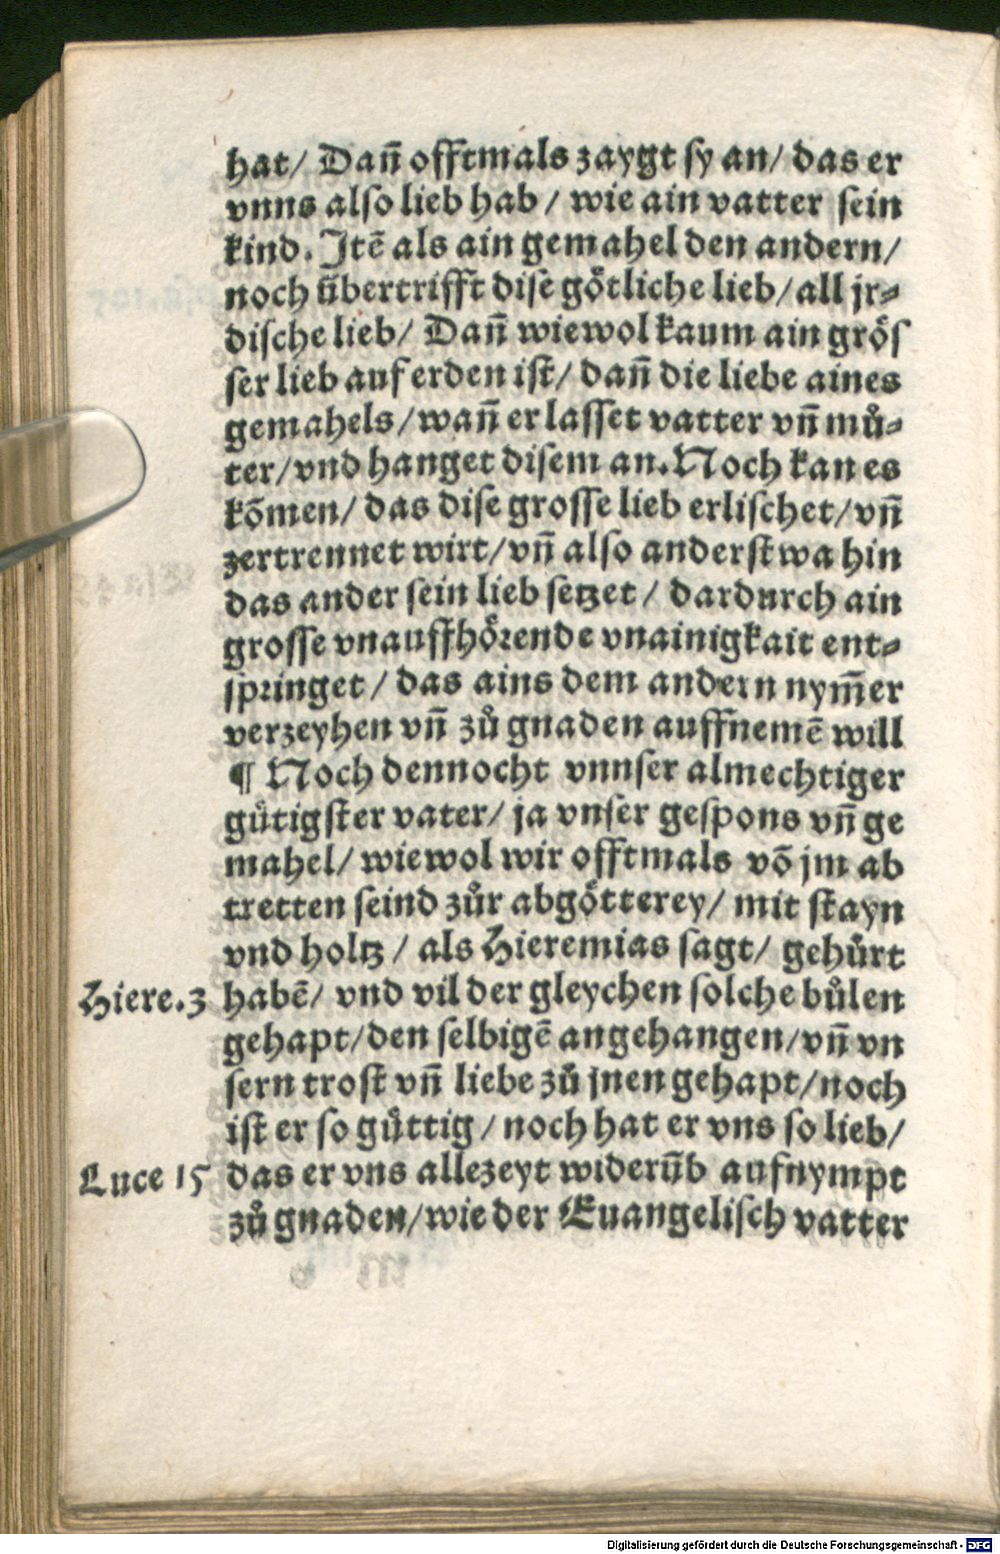 hat/ Dañ offtmals zaygt sy an/ das er
vnns also lieb hab / wie ain vatter sein
kind. Itē als ain gemahel den andern/
noch ü̃bertrifft dise götliche lieb/ all jr⸗
dische lieb/ Dañ wiewol kaum ain grös
ser lieb auf erden ist/ dañ die liebe aines
gemahels/ wañ er lasset vatter vñ mů⸗
ter/ vnd hanget disem an. Noch kan es
kõmen/ das dise grosse lieb erlischet/ vñ
zertrennet wirt/ vñ also anderst wa hin
das ander sein lieb setzet / dardurch ain
grosse vnauffhörende vnainigkait ent⸗
springet / das ains dem andern nym̃er
verzeyhen vñ zů gnaden auffnemē will
¶ Noch dennocht vnnser almechtiger
gütigster vater/ ja vnser gespons vñ ge
mahel/ wiewol wir offtmals võ jm ab
tretten seind zůr abgötterey/ mit stayn
vnd holtz / als Hieremias sagt/ gehůrt
Hiere.3 habē/ vnd vil der gleychen solche bůlen
gehapt/ den selbigē angehangen/ vñ vn
sern trost vñ liebe zů jnen gehapt/ noch
ist er so güttig / noch hat er vns so lieb/
Luce 15 das er vns allezeyt widerũb aufnympt
zů gnaden/ wie der Euangelisch vatter
Digitalisierung gefördert durch die Deutsche Forschungsgemeinschaft - DFG